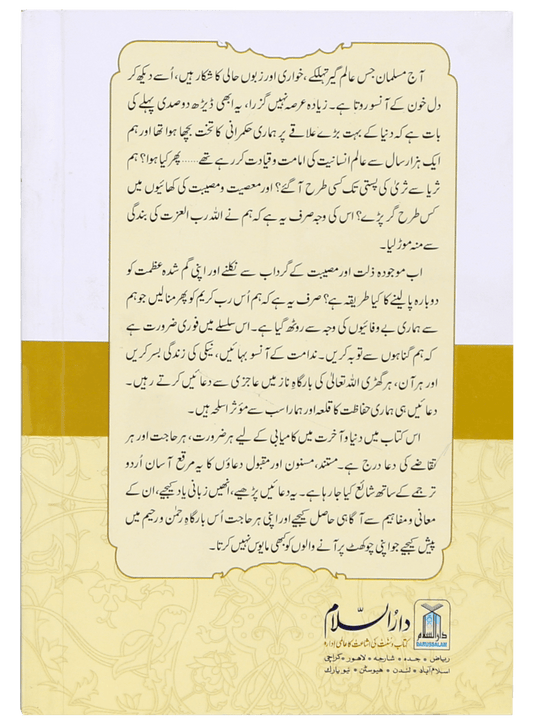 آج مسلمان جس عالم گیر تہلکے، خواری اور زبوں حالی کا شکار ہیں، اُسے دیکھ کر
دل خون کے آنسو روتا ہے۔ زیادہ عرصہ نہیں گزرا، یہ ابھی ڈیڑھ دو صدی پہلے کی
بات ہے کہ دنیا کے بہت بڑے علاقے پر ہماری حکمرانی کا تخت بچھا ہوا تھا اور ہم
ایک ہزار سال سے عالم انسانیت کی امامت و قیادت کر رہے تھے...... پھر کیا ہوا؟ ہم
ثریا سے ثریٰ کی پستی تک کس طرح آ گئے؟ اور معصیت و مصیبت کی کھائیوں میں
کس طرح گر پڑے؟ اس کی وجہ صرف یہ ہے کہ ہم نے اللہ رب العزت کی بندگی
سے منہ موڑ لیا۔
اب موجودہ ذلت اور مصیبت کے گرداب سے نکلنے اور اپنی گم شدہ عظمت کو
دوبارہ پا لینے کا کیا طریقہ ہے؟ صرف یہ ہے کہ ہم اُس رب کریم کو پھر منا لیں جو ہم
سے ہماری بے وفائیوں کی وجہ سے روٹھ گیا ہے۔ اس سلسلے میں فوری ضرورت ہے
کہ ہم گناہوں سے توبہ کریں۔ ندامت کے آنسو بہائیں، نیکی کی زندگی بسر کریں
اور ہر آن، ہر گھڑی اللہ تعالیٰ کی بارگاہِ ناز میں عاجزی سے دعائیں کرتے رہیں۔
دعائیں ہی ہماری حفاظت کا قلعہ اور ہمارا سب سے مؤثر اسلحہ ہیں۔
اس کتاب میں دنیا و آخرت میں کامیابی کے لیے ہر ضرورت، ہر حاجت اور ہر
تقاضے کی دعا درج ہے۔ مستند، مسنون اور مقبول دعاؤں کا یہ مرقع آسان اُردو
ترجمے کے ساتھ شائع کیا جا رہا ہے۔ یہ دعائیں پڑھیے، انھیں زبانی یاد کیجیے، ان کے
معانی و مفاہیم سے آگاہی حاصل کیجیے اور اپنی ہر حاجت اُس بارگاہِ رحمٰن و رحیم میں
پیش کیجیے جو اپنی چوکھٹ پر آنے والوں کو کبھی مایوس نہیں کرتا۔
دارالسلام
کتاب و سنت کی اشاعت کا عالمی ادارہ
ریاض • جدہ • شارجہ • لاہور • کراچی
اسلام آباد • لندن • ہیوسٹن • نیویارک
دارالسلام
DARUSSALAM